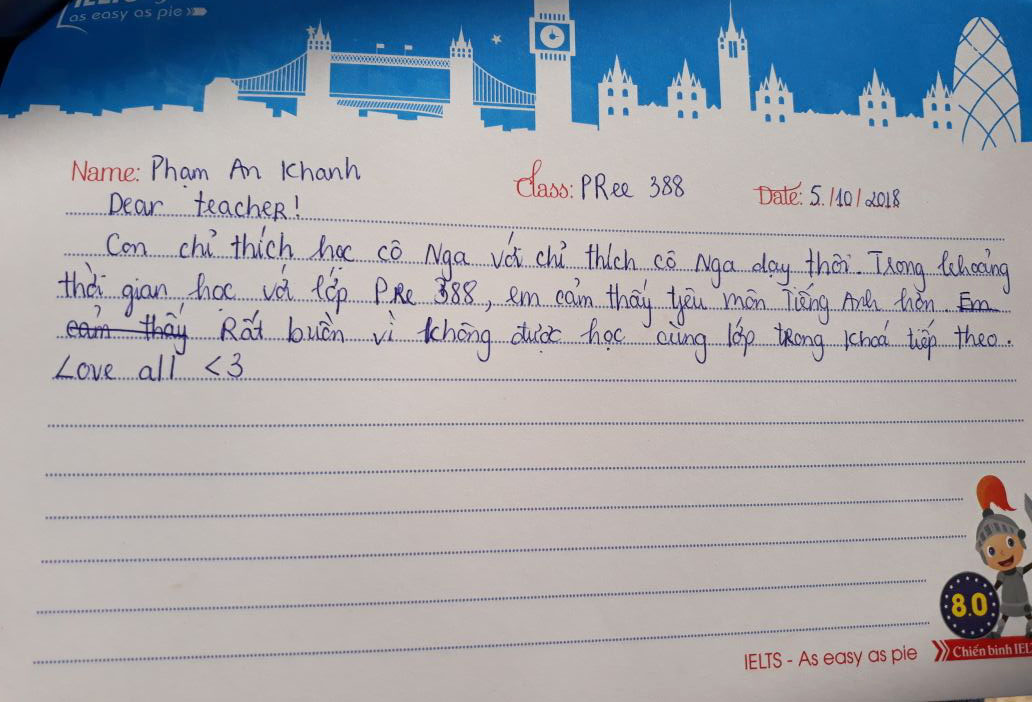 as easy as pie
Name: Phạm An Khanh Class: PRee 388 Date: 5./10/2018
Dear teacheR!
Con chỉ thích học cô Nga với chỉ thích cô Nga dạy thôi. Trong khoảng
thời gian học với lớp PRe 388, em cảm thấy yêu môn Tiếng Anh hơn. Em
cảm thấy Rất buồn vì không được học cùng lớp trong khoá tiếp theo.
Love all <3
8.0
IELTS - As easy as pie Chiến binh IEL